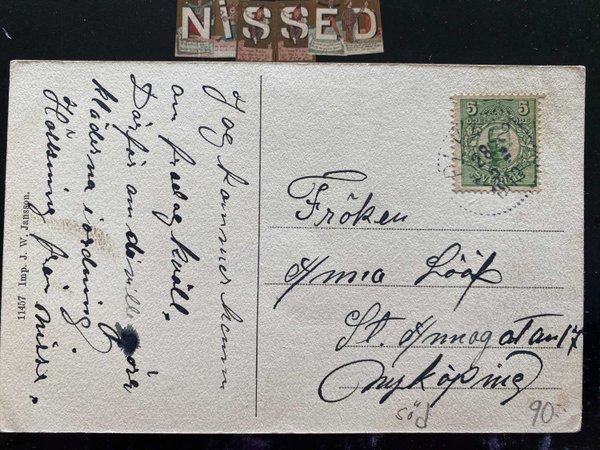 NiSSED
Jag kommer hem
an fredag kväll.
Därför om du vill göra
kläderna i ordning
Hälsning från Nisse.
11457 Imp. J. W. Jansson.
5 5
28
Fröken
Anna Lööf
St. Annogatan 17
Nyköping
söd
90:-